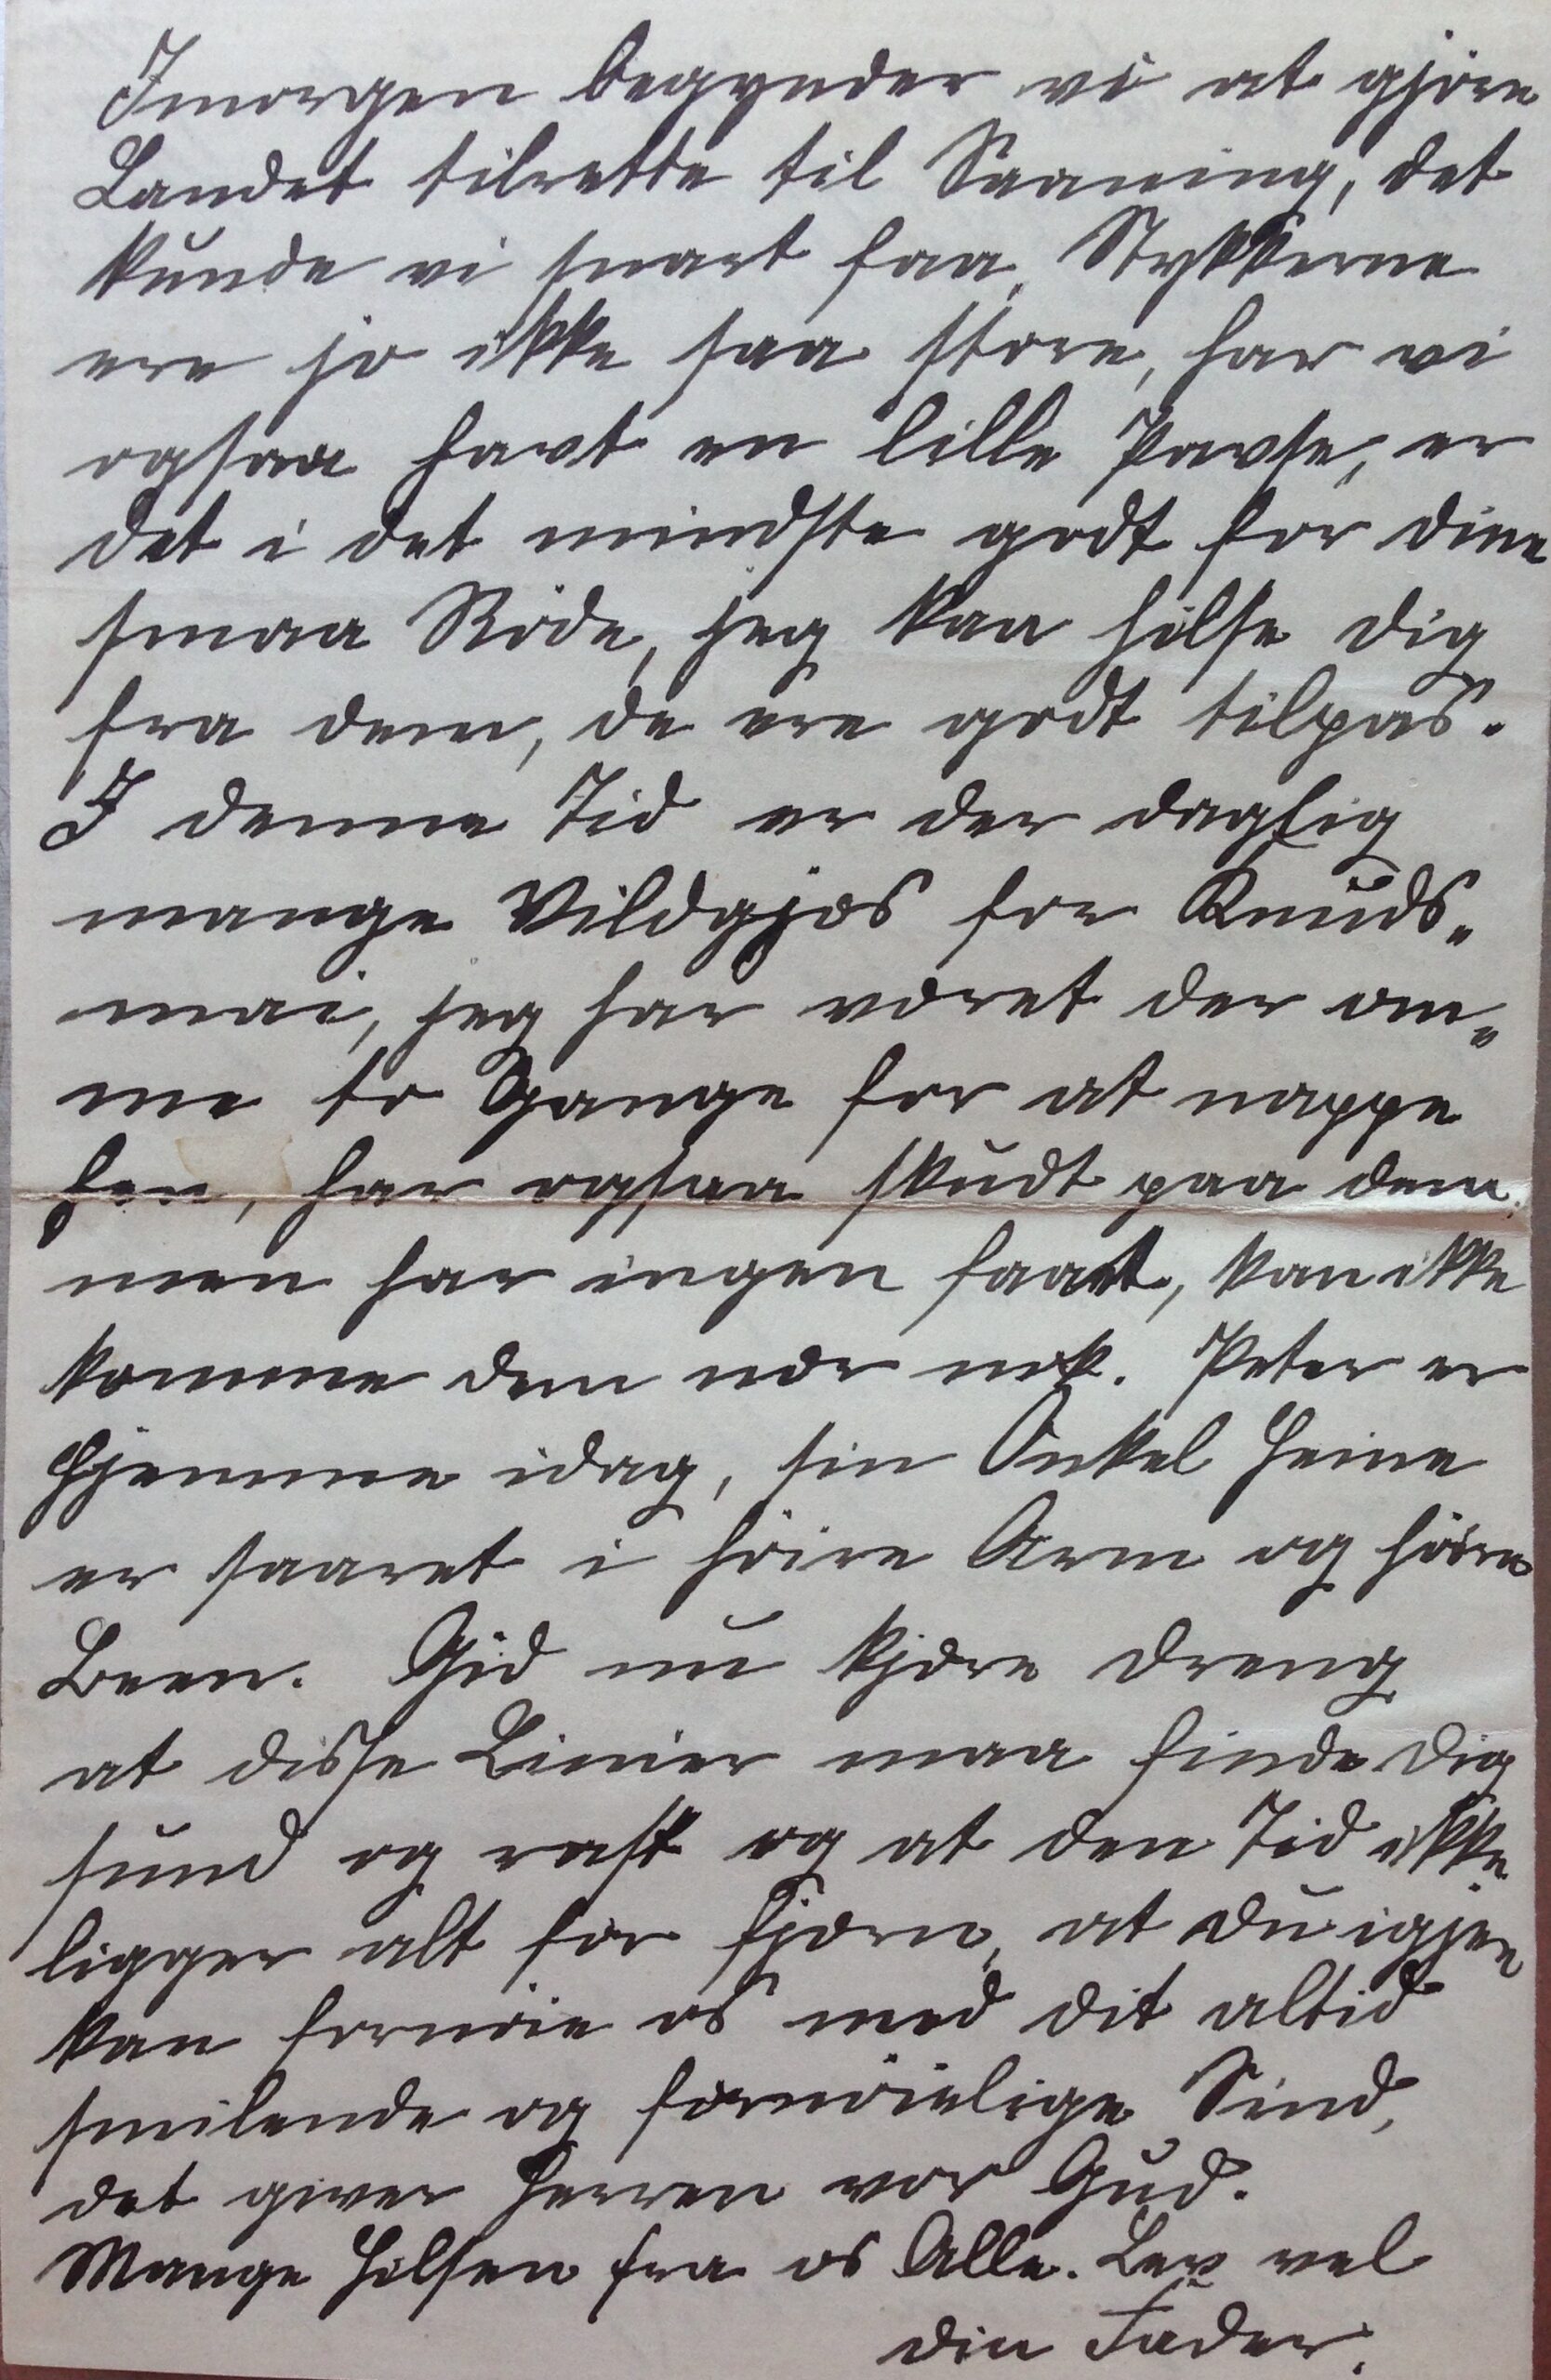 Imorgen begynder vi at gjöre
Landet tilrette til Saaning, det
kunde vi snart faa, Stykkerne
ere jo ikke saa store, har vi
ogsaa havt en lille Pavse, er
det i det mindste godt for dine
smaa Röde, jeg kan hilse dig
fra dem, de ere godt tilpas.
I denne Tid er der daglig
mange Vildgjæs for Knuds„
mai, jeg har været der om„
me to Gange for at nappe
har ogsaa skudt paa dem,
men har ingen faaet, kan ikke
komme dem nær nok. Peter er
hjemme idag, sin Onkel Heine
er saaret i höire Arm og höire
Been. Gid nu kjære Dreng
at disse Linier maa finde dig
sund og rask og at den Tid ikke
ligger alt for fjærn, at du igjen
kan fornöie os med dit altid
smilende og fornöielige Sind,
det giver Herren vor Gud.
Mange Hilsen fra os Alle. Lev vel
din Fader.